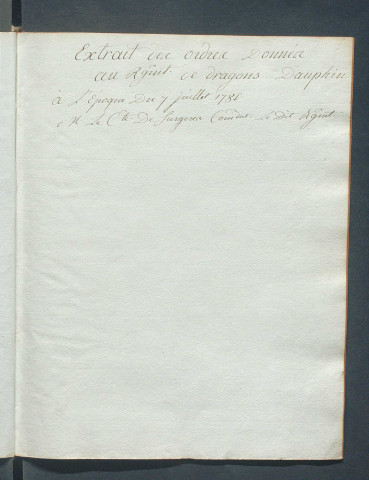 Extrait des ordres Donnés
au Rgint. de dragons Dauphin
à L'Epoque Du 7 juillet 178
M. Le Cte De Surgeres Comdat. Le Dit Rgint.